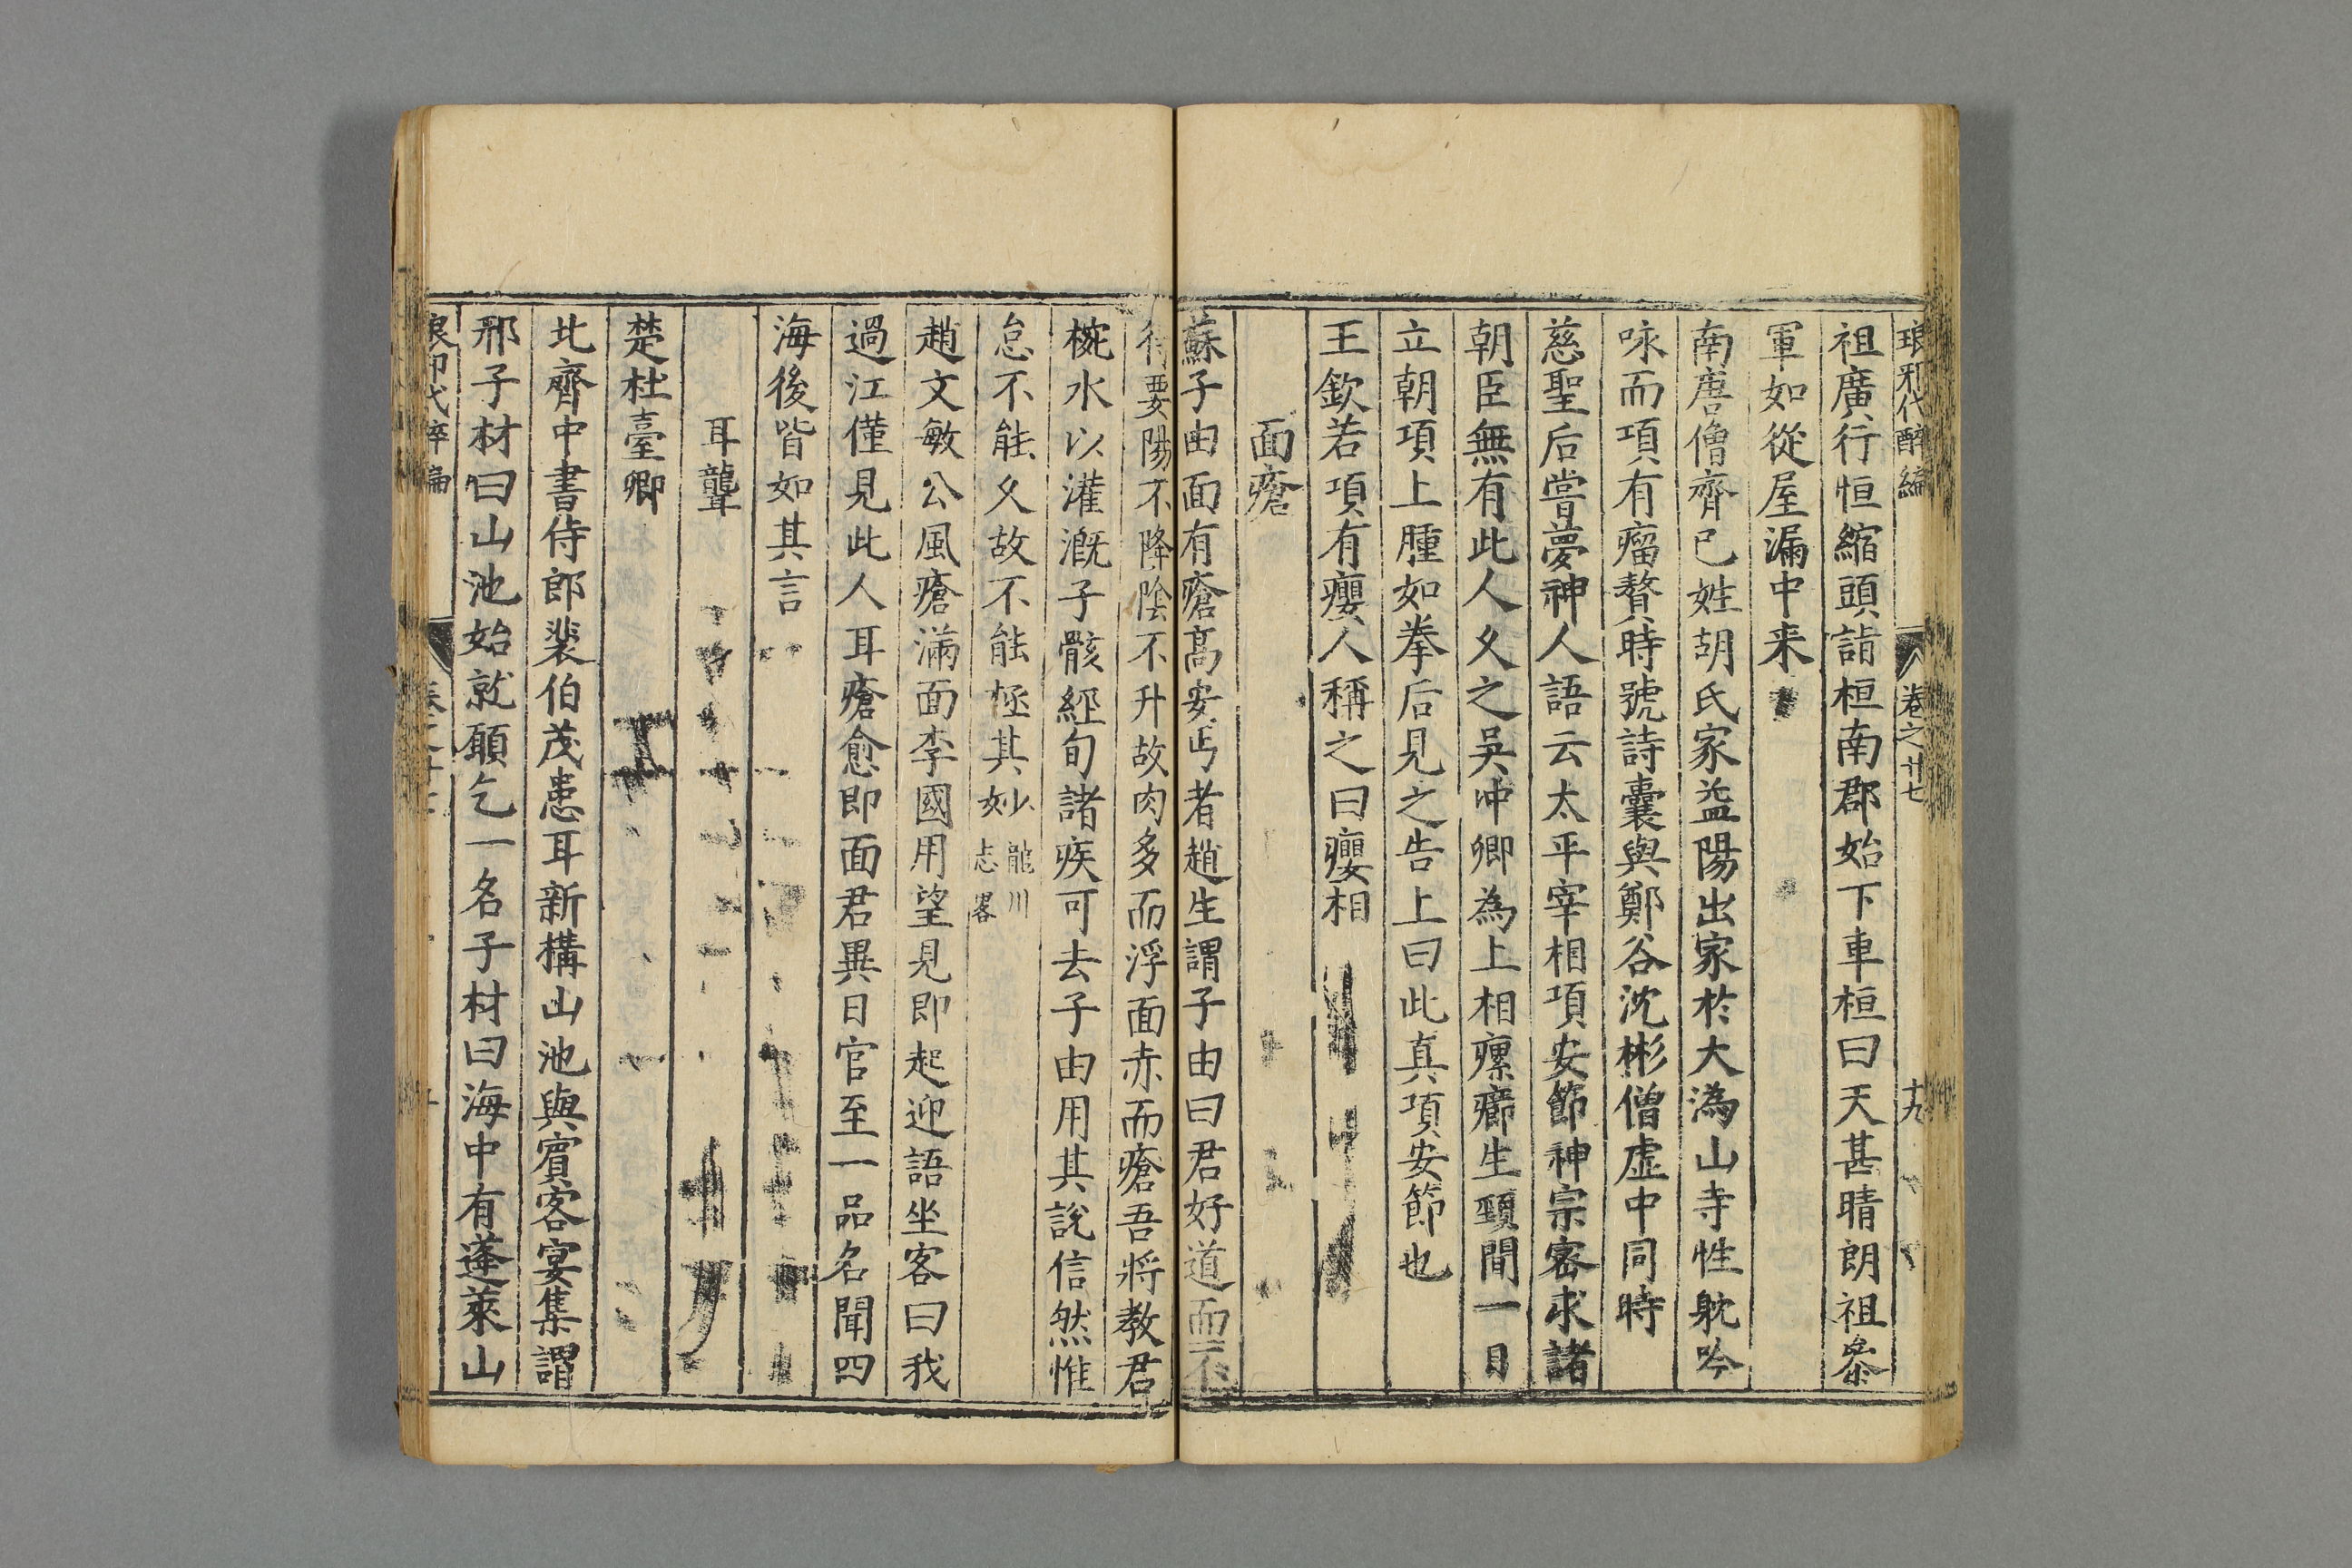 琅邪代醉編 卷之廿七 十九
祖廣行恒縮頭詣桓南郡始下車桓曰天甚晴朗祖叅
軍如從屋漏中来
南唐僧齊已姓胡氏家益陽出家於大溈山寺性躭吟
咏而項有瘤贅時號詩囊與鄭谷沈彬僧虛中同時
慈聖后嘗夢神人語云太平宰相項安節神宗密求諸
朝臣無有此人久之吳冲卿為上相瘰癤生頸間一日
立朝項上腫如拳后見之告上曰此真項安節也
王欽若項有癭人稱之曰癭相
面瘡
蘇子由面有瘡髙安丐者趙生謂子由曰君好道而不
得要陽不降陰不升故肉多而浮面赤而瘡吾將教君
椀水以灌漑子骸經旬諸疾可去子由用其說信然惟
怠不能久故不能極其妙 龍川志畧
趙文敏公風瘡滿面李國用望見即起迎語坐客曰我
過江僅見此人耳瘡愈即面君異日官至一品名聞四
海後皆如其言
耳聾
楚杜臺卿
北齊中書侍郎裴伯茂患耳新構山池與賓客宴集謂
邢子材曰山池始就願乞一名子材曰海中有蓬萊山